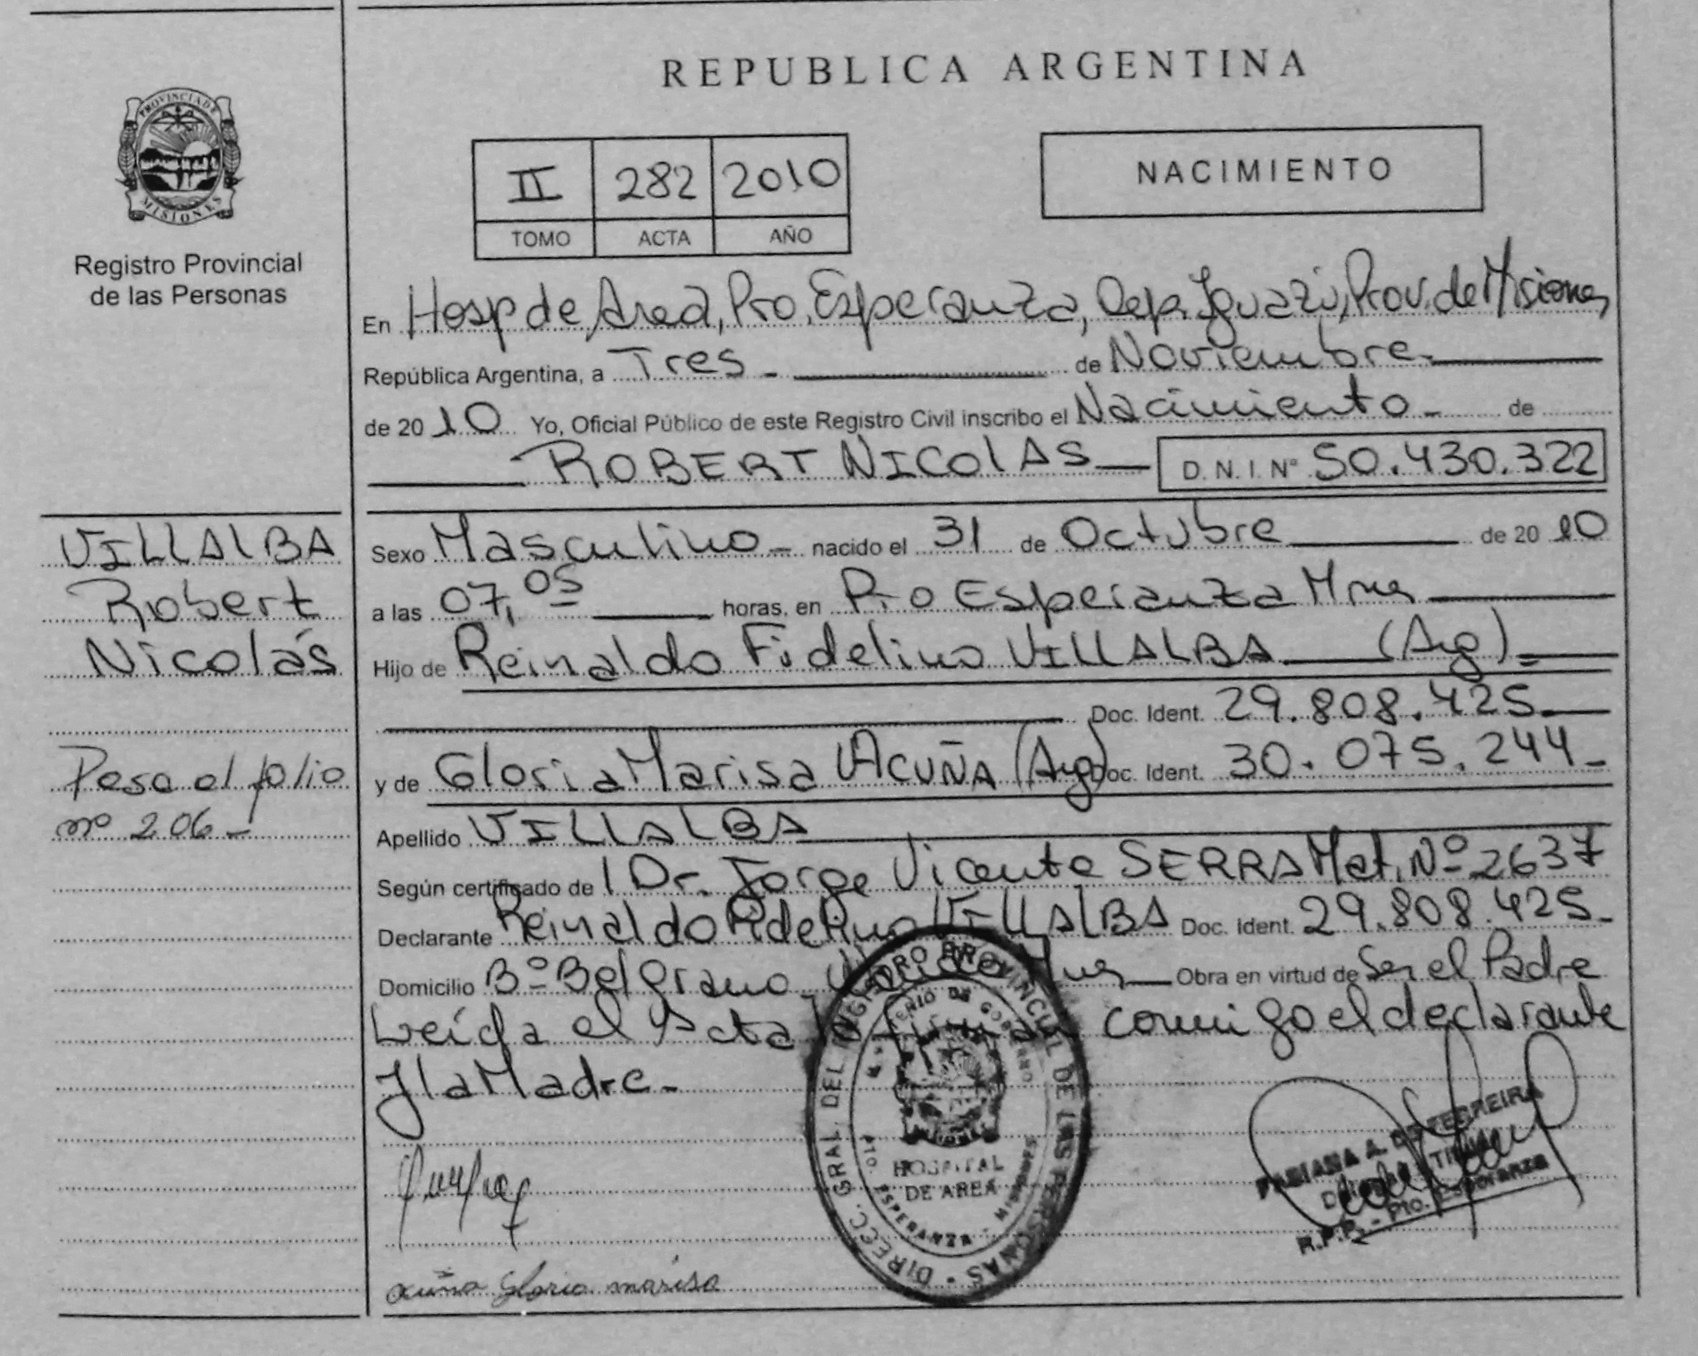 REPUBLICA ARGENTINA
PROVINCIA DE
MISIONES
Registro Provincial
de las Personas
II 282 2010
TOMO ACTA AÑO
NACIMIENTO
En Hosp de Area, Pto. Esperanza, Dep. Iguazú, Prov. de Misiones
República Argentina, a Tres - de Noviembre -
de 2010 Yo, Oficial Público de este Registro Civil inscribo el Nacimiento - de
ROBERT NICOLAS D. N. I. N° 50.430.322
VILLALBA
Robert
Nicolás
Pasa al folio
nº 206 -
Sexo Masculino - nacido el 31 de Octubre de 2010
a las 07,05 horas, en Pto Esperanza Mnes
Hijo de Reinaldo Fidelino VILLALBA (Arg).
Doc. Ident. 29.808.425
y de Gloria Marisa ACUÑA (Arg) Doc. Ident. 30.075.244 -
Apellido VILLALBA
Según certificado de l Dr. Jorge Vicente SERRA Mat. Nº 2637
Declarante Reinaldo Fidelino VILLALBA Doc. Ident. 29.808.425 -
Domicilio Bº Belgrano, Mnes Obra en virtud de Ser el Padre
Leída el Acta la firman conmigo el declarante
y la Madre -
DIRECC. GRAL. DEL REGISTRO PROVINCIAL DE LAS PERSONAS
MINISTERIO DE GOBIERNO
HOSPITAL
DE AREA
PTO. ESPERANZA - MISIONES
FABIANA A. DE FERREIRA
R.P.P. - Pto. Esperanza
acuña Gloria marisa